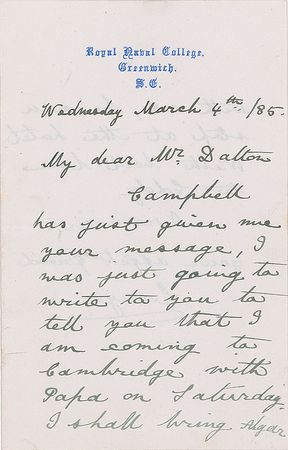 Royal Naval College.
Greenwich.
S.E.
Wednesday March 4th/85.
My dear Mr Dalton
Campbell
has just given me
your message, I
was just going to
write to you to
tell you that I
am coming to
Cambridge with
Papa on Saturday.
I shall bring Algar